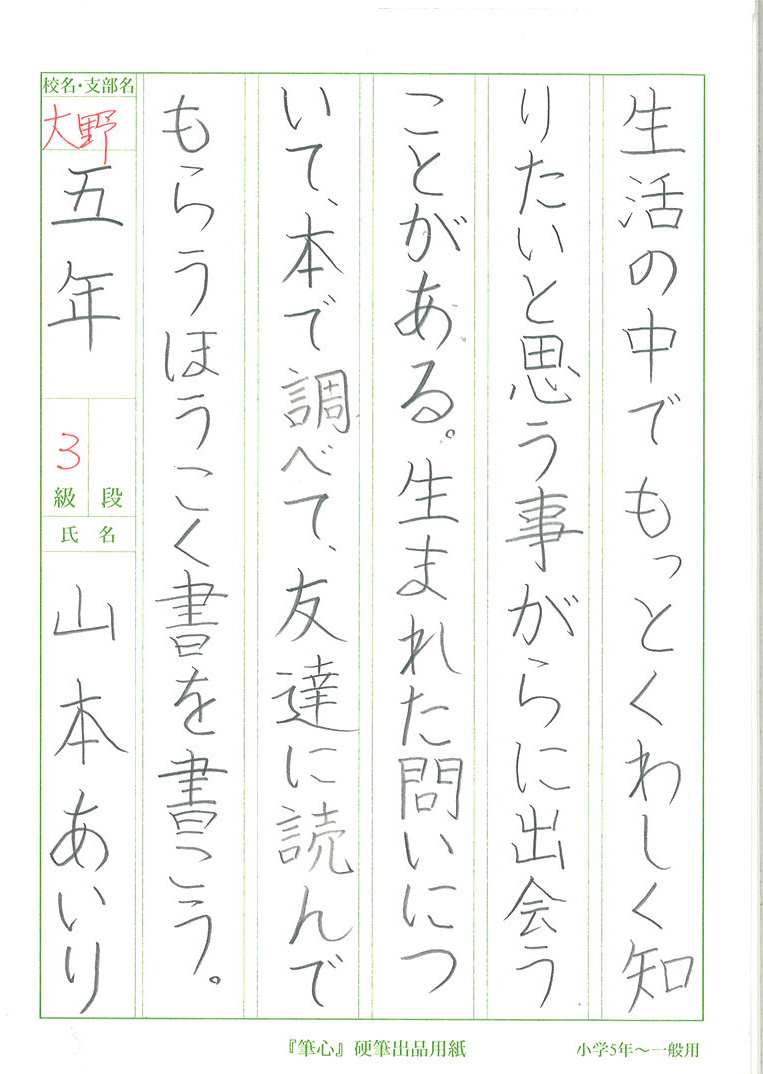 生活の中でもっとくわしく知
りたいと思う事がらに出会う
ことがある。生まれた問いにつ
いて、本で調べて、友達に読んで
もらうほうこく書を書こう。
校名・支部名
大野
五年
3
級 段
氏 名
山本あいり
『筆心』硬筆出品用紙
小学5年〜一般用